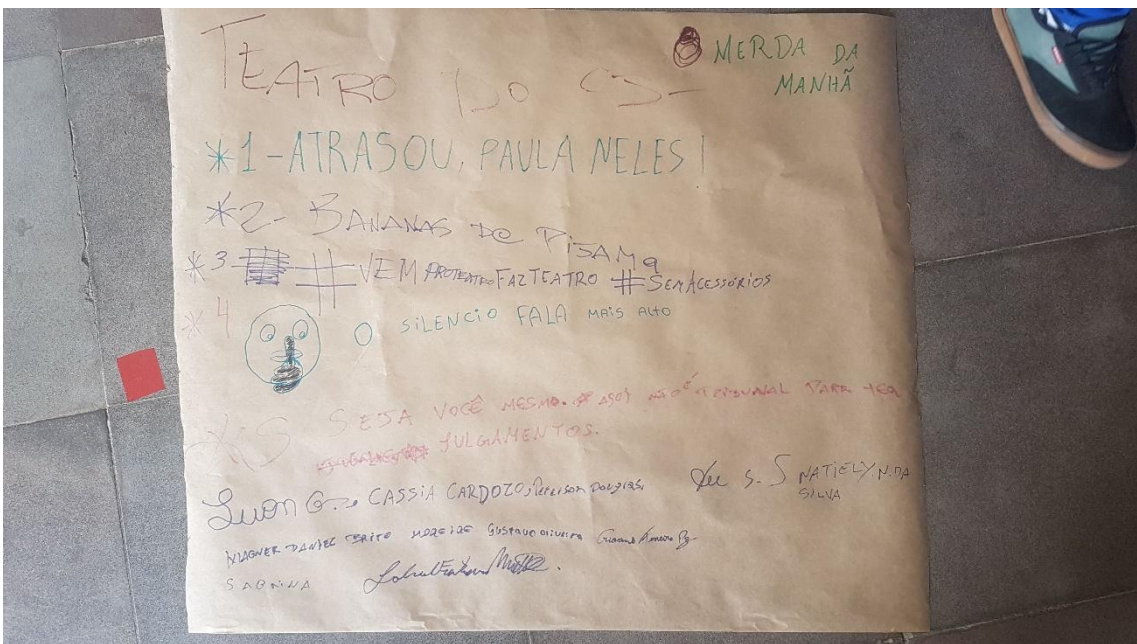 TEATRO DO CJ-
MERDA DA
MANHÃ
*1-ATRASOU, PAULA NELES!
*2- BANANAS DE PIJAMA
*3 #VEM PROTEATRO FAZ TEATRO #SEM ACESSÓRIOS
*4 O SILENCIO FALA MAIS ALTO
*5 SEJA VOCÊ MESMO. AQUI NÃO É TRIBUNAL PARA TER
JULGAMENTOS.
CASSIA CARDOZO, Douglas, NATIELY N. DA
SILVA
WAGNER DANIEL BRITO Gustavo oliveira
SABRINA